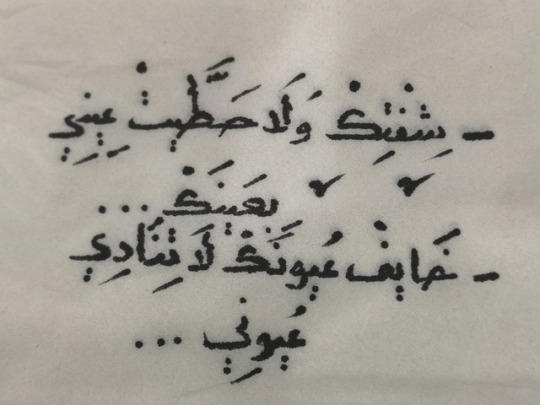 - شِفْتِكْ وَلَا حَطَّيْتْ عِينِي
بَعَينِكْ ...
- خَايِفْ عُيُونَكْ لَا تِنَادِي
عُيُونِي ...